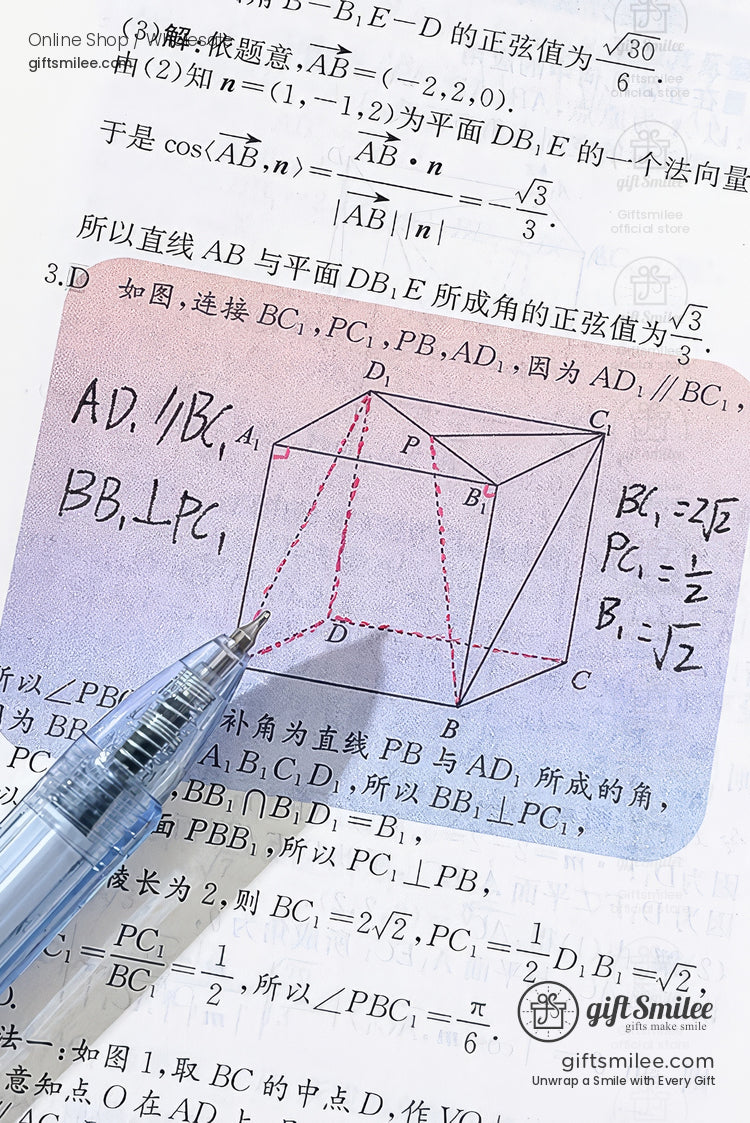 B－B₁E－D 的正弦值为√30/6.
Online Shop / Wholesale
giftsmilee.com
(3)解:依题意,AB=(－2,2,0).
由(2)知 n=(1,－1,2)为平面 DB₁E 的一个法向量
于是 cos⟨AB,n⟩=AB·n/|AB||n|=－√3/3.
所以直线 AB 与平面 DB₁E 所成角的正弦值为√3/3.
3.D 如图,连接 BC₁,PC₁,PB,AD₁,因为 AD₁∥BC₁,
AD₁∥BC₁
BB₁⊥PC₁
D₁
A₁
P
C₁
B₁
D
C
B
BC₁=2√2
PC₁=1/2
B₁=√2
所以∠PBC
补角为直线 PB 与 AD₁ 所成的角,
为 BB
A₁B₁C₁D₁,所以 BB₁⊥PC₁,
PC
,BB₁∩B₁D₁=B₁,
面 PBB₁,所以 PC₁⊥PB,
棱长为 2,则 BC₁=2√2,PC₁=1/2D₁B₁=√2,
C₁=PC₁/BC₁=1/2,所以∠PBC₁=π/6.
法一:如图 1,取 BC 的中点 D,作 VO⊥
意知点 O 在 AD 上
gift Smilee
gifts make smile
giftsmilee.com
Unwrap a Smile with Every Gift
gift Smilee
Giftsmilee
official store